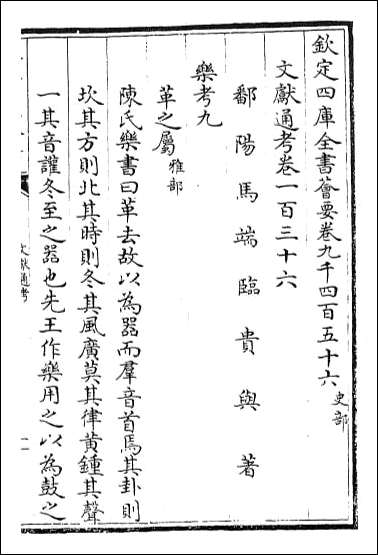 欽定四庫全書薈要卷九千四百五十六 史部
文獻通考卷一百三十六
鄱陽馬端臨貴與著
樂考九
革之屬 雅部
陳氏樂書曰革去故以為器而羣音首焉其卦則
坎其方則北其時則冬其風廣莫其律黄鍾其聲
一其音讙冬至之器也先王作樂用之以為鼓之
文獻通考